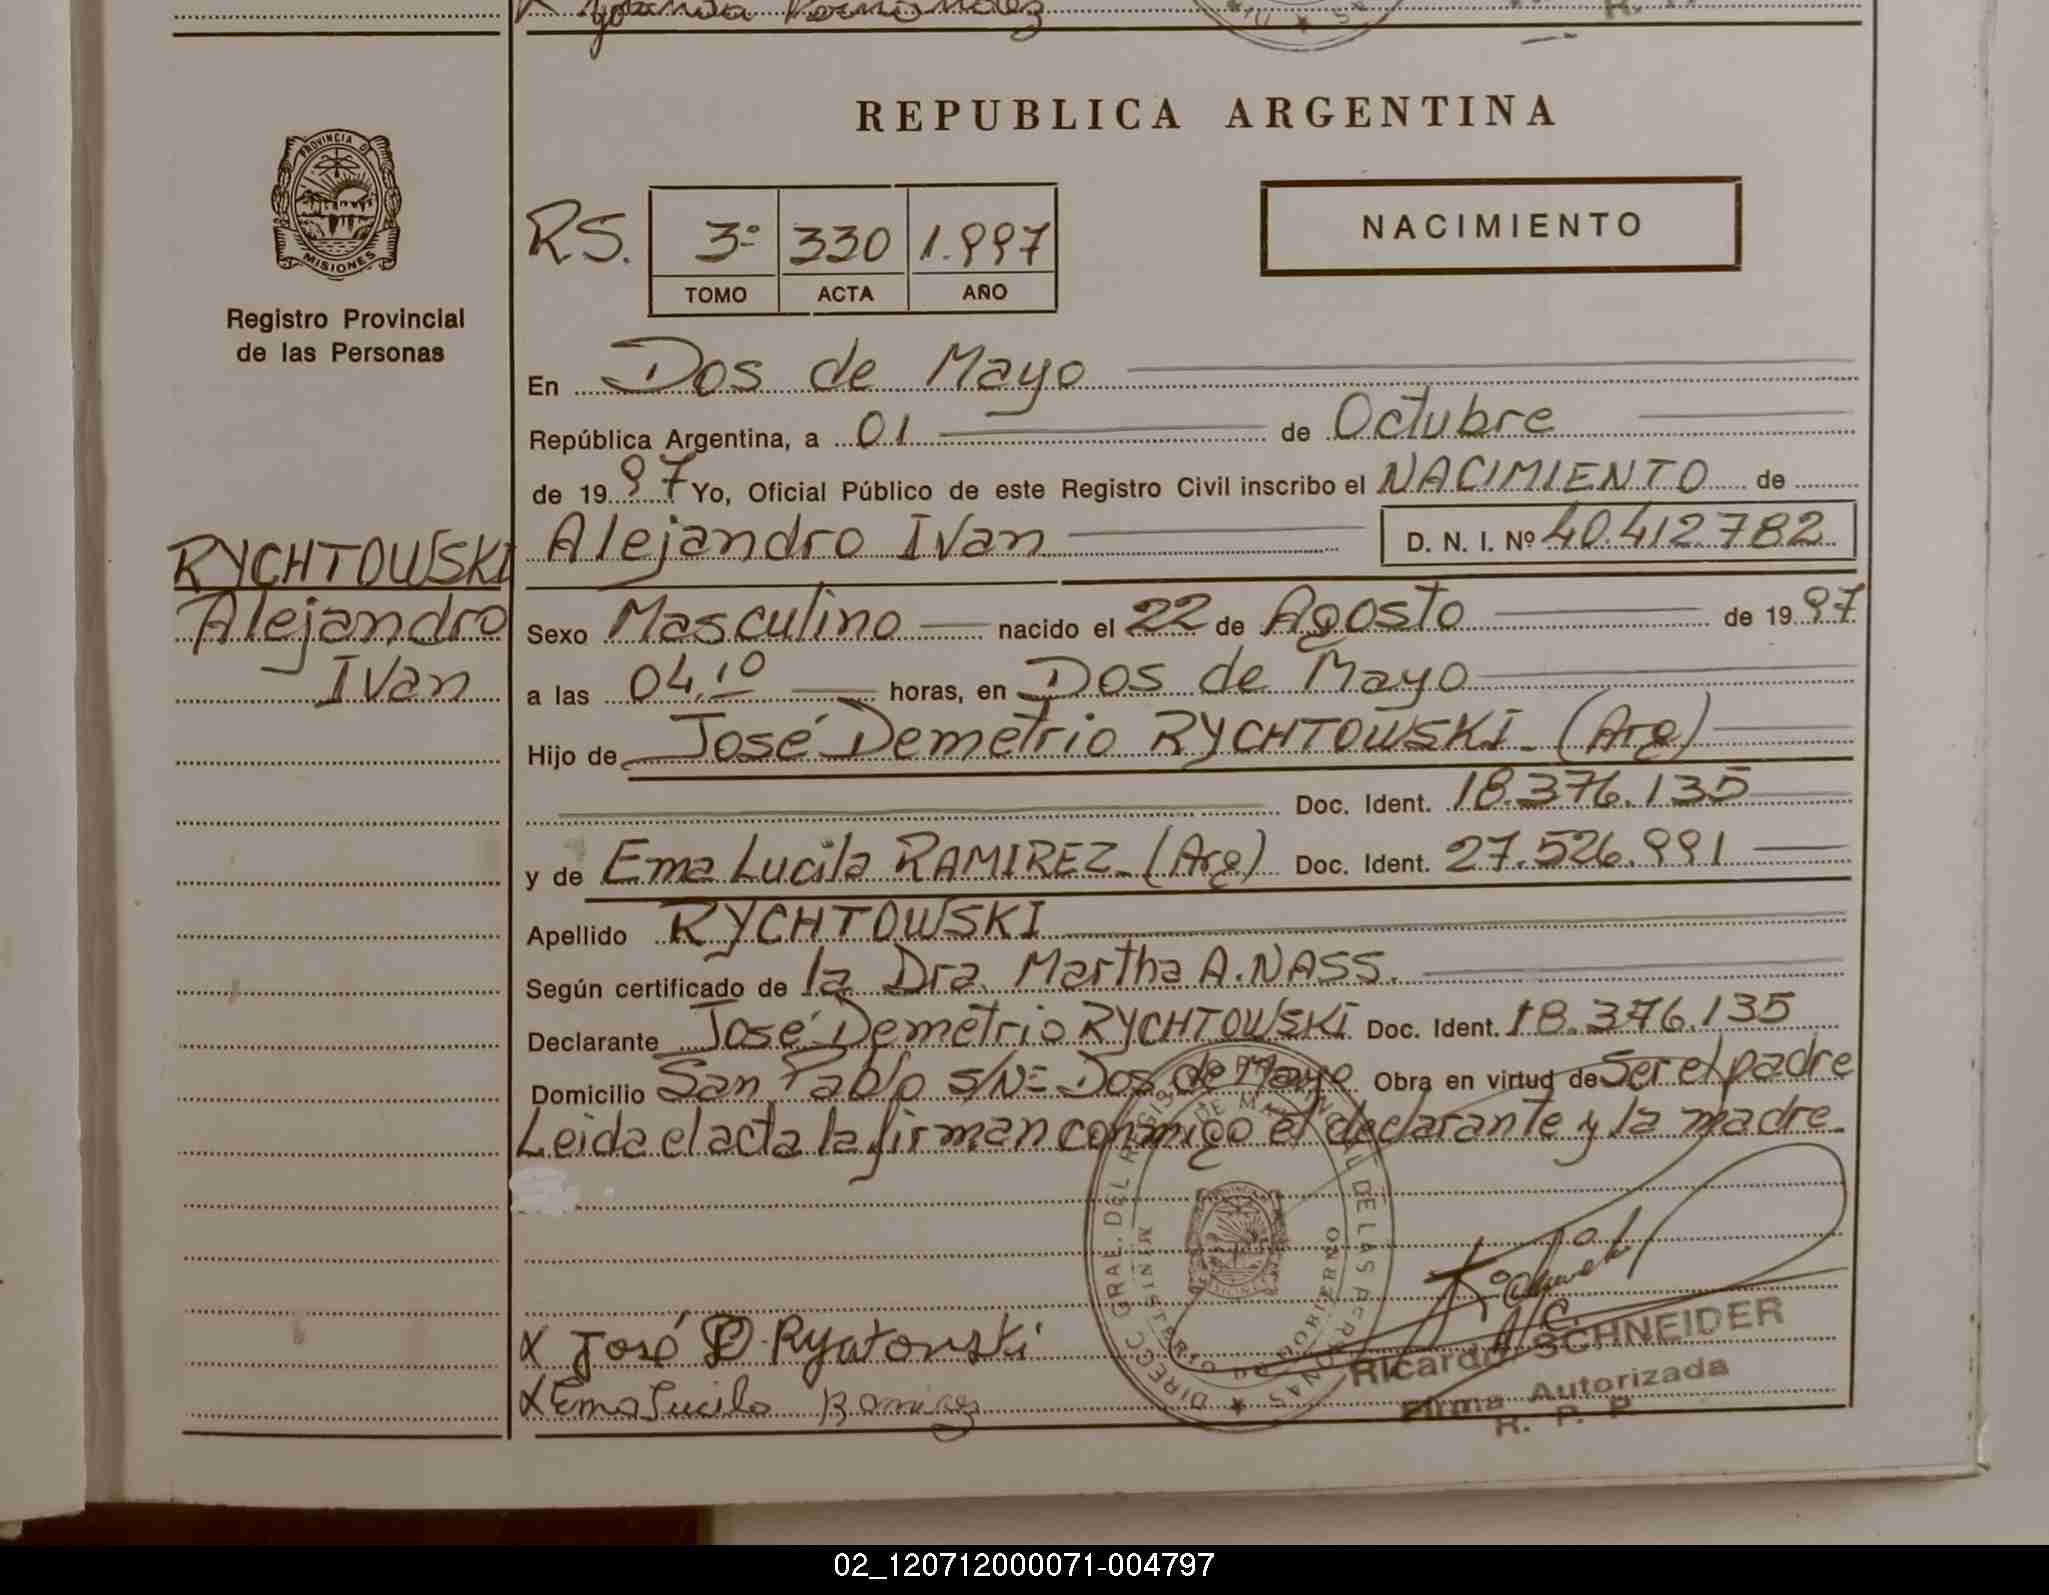 Yolanda
REPUBLICA ARGENTINA
PROVINCIA DE
MISIONES
Registro Provincial
de las Personas
RS. 3º 330 1.997
TOMO ACTA AÑO
NACIMIENTO
En Dos de Mayo
República Argentina, a 01 de Octubre
de 1997 Yo, Oficial Público de este Registro Civil inscribo el NACIMIENTO de
RYCHTOWSKI
Alejandro
Ivan
Alejandro Ivan D. N. I. Nº 40.412.782
Sexo Masculino nacido el 22 de Agosto de 1997
a las 04,10 horas, en Dos de Mayo
Hijo de José Demetrio RYCHTOWSKI. (Arg)
Doc. Ident. 18.376.135
y de Ema Lucila RAMIREZ. (Arg) Doc. Ident. 27.526.991
Apellido RYCHTOWSKI
Según certificado de la Dra. Martha A. NASS.
Declarante José Demetrio RYCHTOWSKI Doc. Ident. 18.376.135
Domicilio San Pablo S/Nº Dos de Mayo Obra en virtud de Ser el padre
Leida el acta la firman conmigo el declarante y la madre.
DIRECC GRAL. DEL DE LAS PERSONAS
MINISTERIO DE GOBIERNO
X José D. Ryatowski
X Ema Lucila Ramirez
A/C.
Ricardo SCHNEIDER
Firma Autorizada
R. P. P
02_120712000071-004797